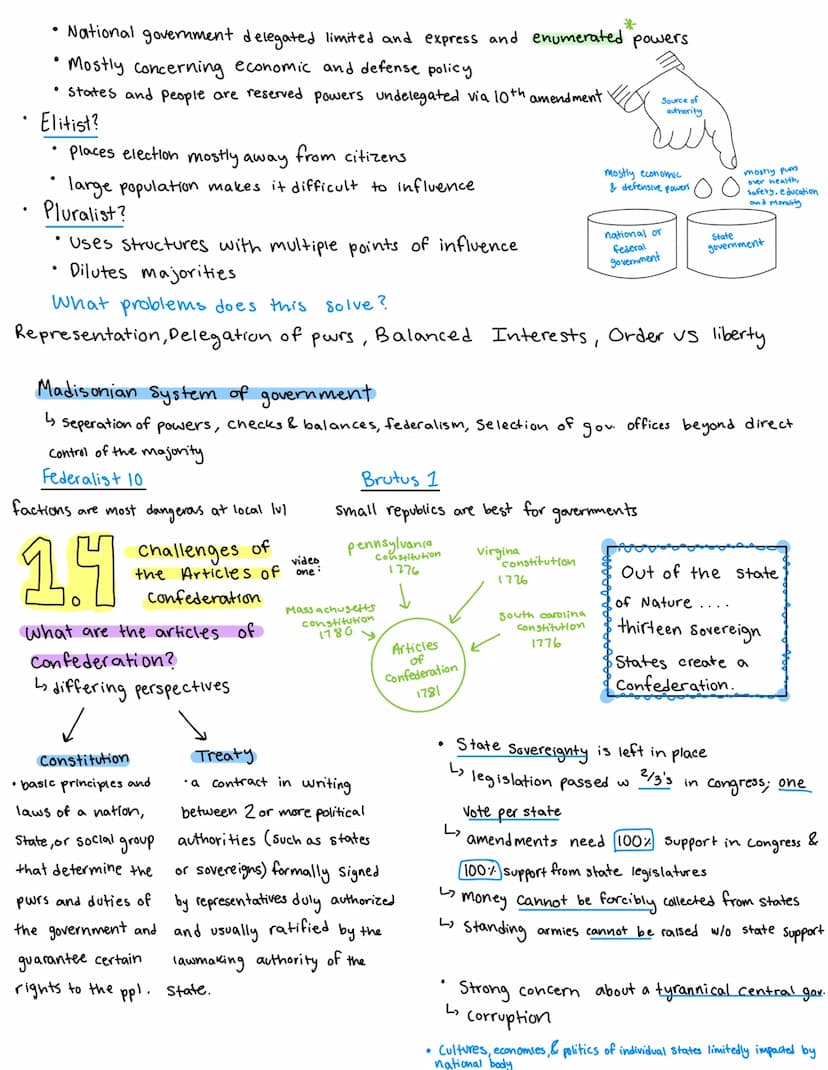 • National government delegated limited and express and enumerated* powers
• Mostly concerning economic and defense policy
• States and people are reserved powers undelegated via 10th amendment
Source of
authority
• Elitist?
• Places election mostly away from citizens
• large population makes it difficult to influence
• Pluralist?
• Uses structures with multiple points of influence
• Dilutes majorities
Mostly economic
& defensive powers
mostly pwrs
over health,
safety, education
and morality
national or
federal
government
State
government
What problems does this solve?
Representation, Delegation of pwrs, Balanced Interests, Order vs liberty
Madisonian System of government
↳ Seperation of powers, checks & balances, federalism, Selection of gov. offices beyond direct
control of the majority
Federalist 10
factions are most dangerous at local lvl
Brutus 1
Small republics are best for governments
1.4
Challenges of
the Articles of
Confederation
video
one:
Pennsylvania
Constitution
1776
Virgina
constitution
1776
Massachusetts
constitution
1780
South carolina
constitution
1776
Articles
of
Confederation
1781
Out of the State
of Nature ....
thirteen Sovereign
States create a
Confederation.
What are the articles of
Confederation?
↳ differing perspectives
Constitution
• basic principles and
laws of a nation,
State, or social group
that determine the
pwrs and duties of
the government and
guarantee certain
rights to the ppl.
Treaty
• a contract in writing
between 2 or more political
authorities (such as states
or sovereigns) formally signed
by representatives duly authorized
and usually ratified by the
lawmaking authority of the
State.
• State Sovereignty is left in place
↳ legislation passed w 2/3's in Congress; one
vote per state
↳ amendments need 100% Support in Congress &
100% support from state legislatures
↳ Money cannot be forcibly collected from states
↳ Standing armies cannot be raised w/o state support
• Strong concern about a tyrannical central gov.
↳ corruption
• Cultures, economies, & politics of individual States limitedly impacted by
national body